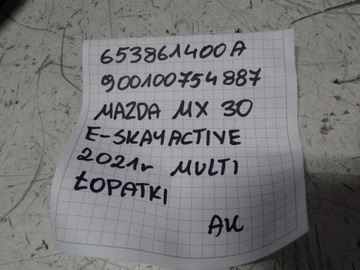 653861400A
900100754887
MAZDA MX 30
E-SKAYACTIVE
2021r MULTI
ŁOPATKI
AK